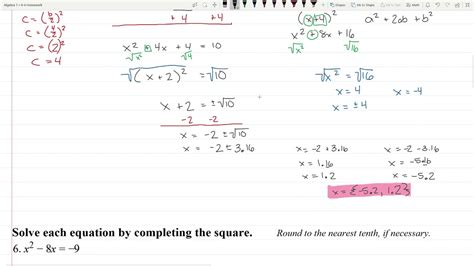 c = (b/2)²
c = (4/2)²
c = (2)²
c = 4
+4 +4
x² + 4x + 4 = 10
√x² √4
√(x + 2)² = √10
x + 2 = ±√10
-2 -2
x = -2 ± √10
x = -2 ± 3.16
(x+4)² a² + 2ab + b²
x² + 8x + 16
√x² √16
√x² = √16
x = 4 x = -4
x = ± 4
x = -2 + 3.16 x = -2 - 3.16
x = 1.16 x = -5.16
x = 1.2 x = -5.2
x = {-5.2, 1.2}
Solve each equation by completing the square. Round to the nearest tenth, if necessary.
6. x² − 8x = −9